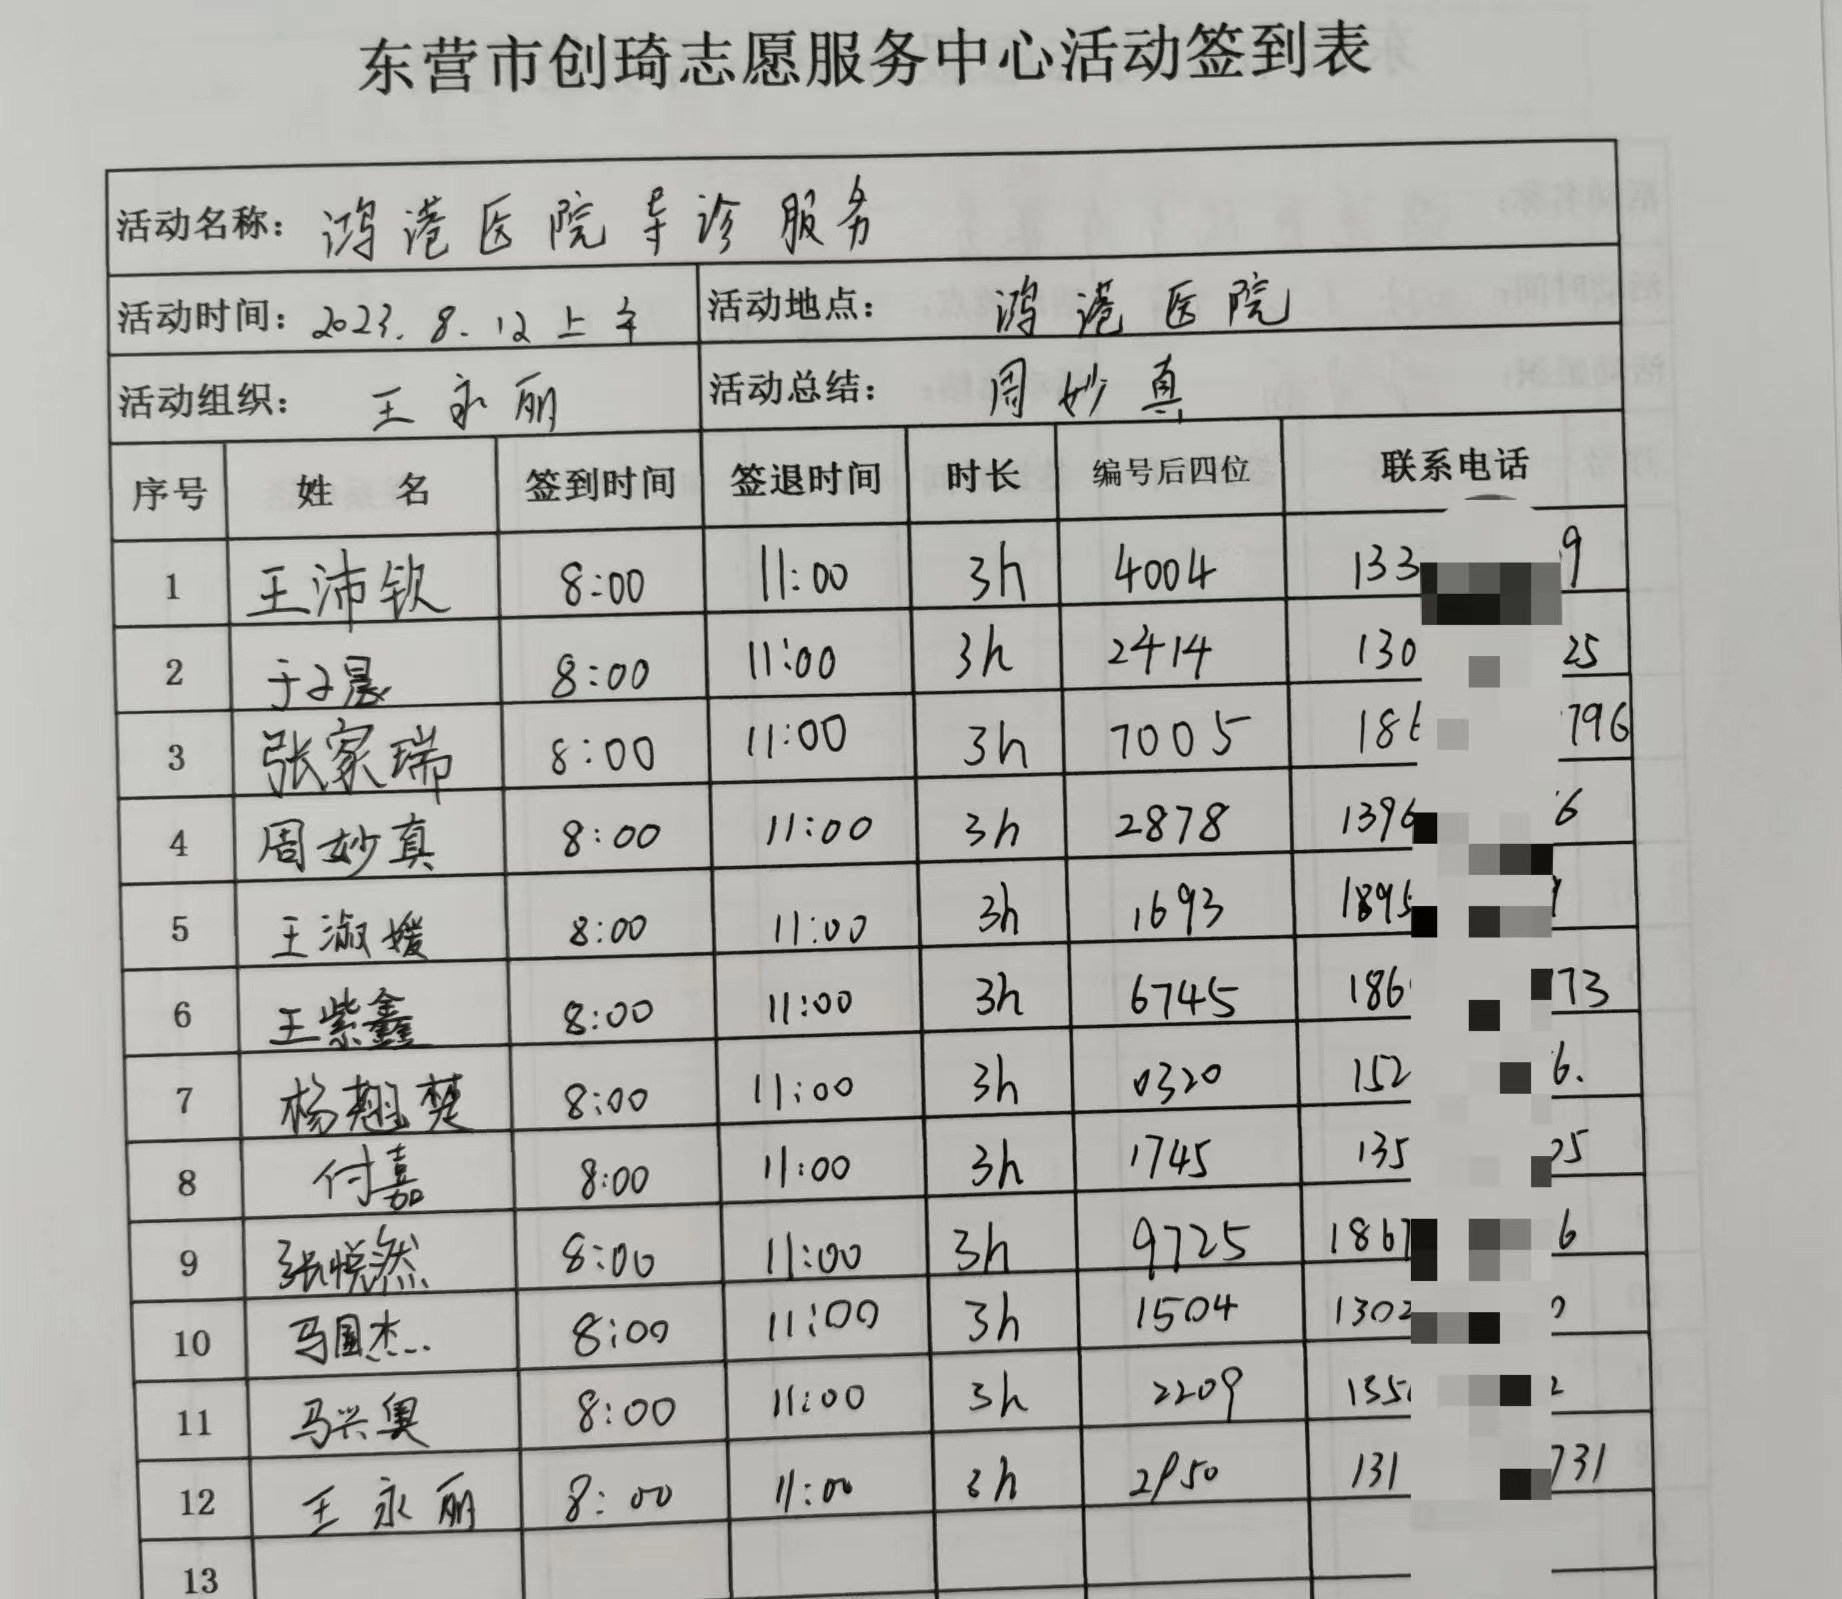 东营市创琦志愿服务中心活动签到表
活动名称：鸿港医院导诊服务
活动时间：2023.8.12上午 活动地点：鸿港医院
活动组织：王永丽 活动总结：周妙真
序号 姓 名 签到时间 签退时间 时长 编号后四位 联系电话
1 王沛钦 8:00 11:00 3h 4004 133 9
2 于子晨 8:00 11:00 3h 2414 130 25
3 张家瑞 8:00 11:00 3h 7005 18 796
4 周妙真 8:00 11:00 3h 2878 1396 6
5 王淑媛 8:00 11:00 3h 1693 1895
6 王紫鑫 8:00 11:00 3h 6745 186 73
7 杨翘楚 8:00 11:00 3h 0320 152 6.
8 付嘉 8:00 11:00 3h 1745 135 5
9 张悦然 8:00 11:00 3h 9725 1867 6
10 马国杰 8:00 11:00 3h 1504 1302
11 马兴奥 8:00 11:00 3h 2209 135 2
12 王永丽 8:00 11:00 3h 2950 131 731
13